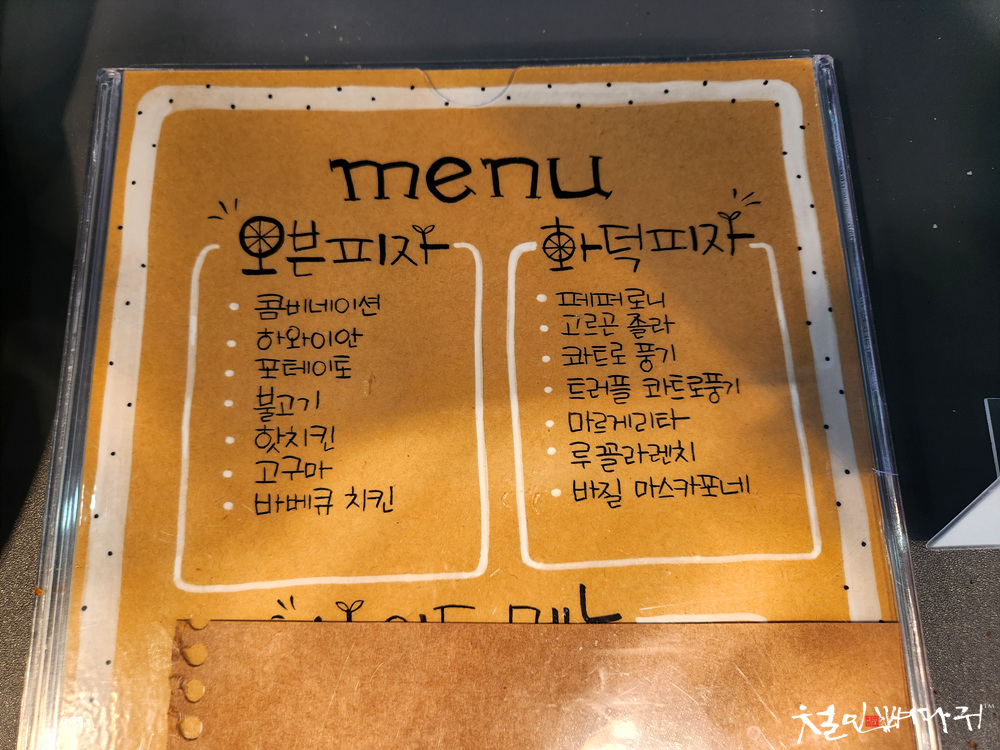 menu
오븐피자
콤비네이션
하와이안
포테이토
불고기
핫치킨
고구마
바베큐 치킨
화덕피자
페퍼로니
고르곤 졸라
콰트로 풍기
트러플 콰트로풍기
마르게리타
루꼴라렌치
바질 마스카포네